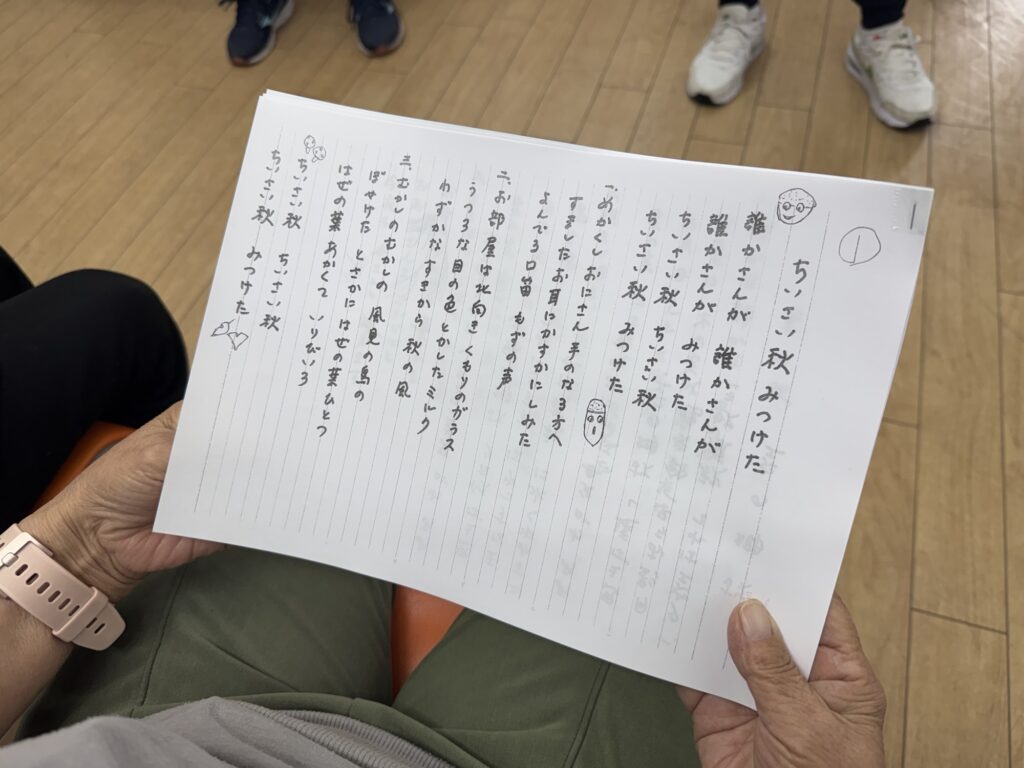 ①
ちいさい秋 みつけた
誰かさんが 誰かさんが
誰かさんが みつけた
ちいさい秋 ちいさい秋
ちいさい秋 みつけた
一、めかくしおにさん 手のなる方へ
すましたお耳にかすかにしみた
よんでる口笛 もずの声
二、お部屋は北向き くもりのガラス
うつろな目の色 とかしたミルク
わずかなすきから 秋の風
三、むかしのむかしの 風見の鳥の
ぼやけた とさかに はぜの葉ひとつ
はぜの葉 あかくて いりひいろ
ちいさい秋 ちいさい秋
ちいさい秋 みつけた